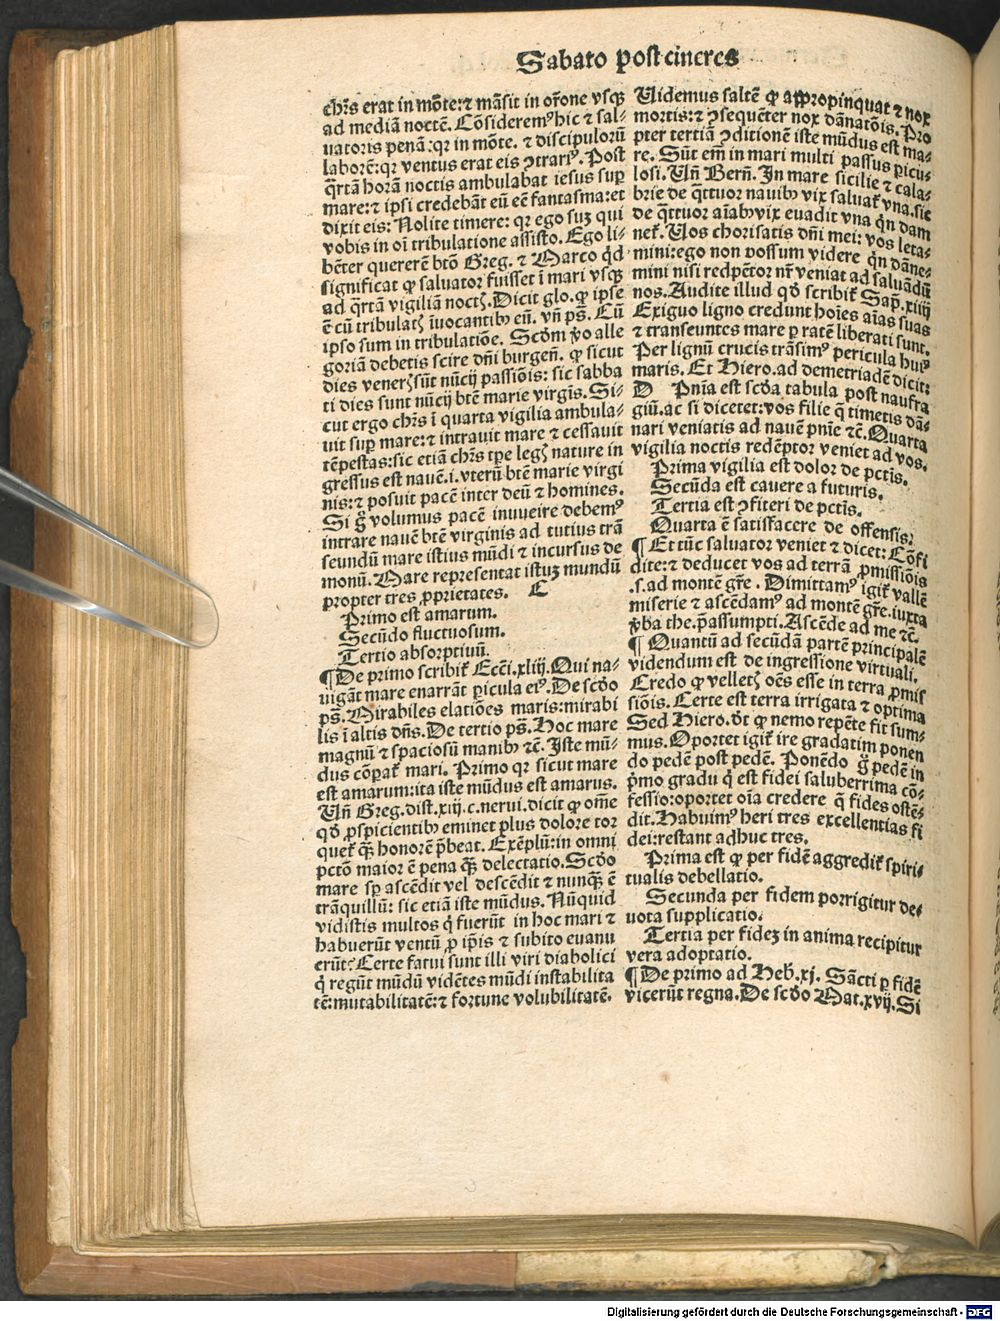 Sabato post cineres
chr̄s erat in mōte: ⁊ māsit in or̄one vsqꝫ
ad mediā noctē. Cōsideremꝰ hic ⁊ sal⸗
uatoris penā: qr in mōte. ⁊ discipuloꝝ
laborē: qr ventus erat eis ꝯtrariꝰ. Post
q̄rtā horā noctis ambulabat iesus suꝑ
mare: ⁊ ipsi credebāt eū eē fantasma: et
dixit eis: Nolite timere: qr ego suꝫ qui
vobis in oī tribulatione assisto. Ego li⸗
bēter quererē btō Greg. ⁊ Marco q̇d
significat ꝙ saluator fuisset ī mari vsqꝫ
ad q̄rtā vigiliā noctꝭ. Dicit glo. ꝙ ipse
ē cū tribulatꝭ īuocantibꝰ eū. vn̄ ps̄. Cū
ipso sum in tribulatiōe. Scd̄m v̊o alle
goriā debetis scire dn̄i burgen̄. ꝙ sicut
dies venerꝭ sūt nūcij passiōis: sic sabba
ti dies sunt nūcij btē marie virgīs. Si⸗
cut ergo chr̄s ī quarta vigilia ambula⸗
uit suꝑ mare: ⁊ intrauit mare ⁊ cessauit
tēpestas: sic etiā chr̄s tꝑe legꝭ nature in
gressus est nauē .i. vterū btē marie virgi
nis: ⁊ posuit pacē inter deū ⁊ homines.
Si g̊ volumus pacē inuueire debemꝰ
intrare nauē btē virginis ad tutius trā
seundū mare istius mūdi ⁊ incursus de
monū. Mare representat istuꝫ mundū
propter tres ꝓprietates. C
Primo est amarum.
Secūdo fluctuosum.
Tertio absorptiuū.
¶ De primo scribiť Eccī. xliij. Qui na⸗
uigāt mare enarrāt ꝑicula eiꝰ. De scd̄o
ps̄. Mirabiles elatiōes maris: mirabi
lis ī altis dn̄s. De tertio ps̄. Hoc mare
magnū ⁊ spaciosū manibꝰ ⁊c̄. Iste mū⸗
dus cōparať mari. Primo qr sicut mare
est amarum: ita iste mūdus est amarus.
Vn̄ Greg. dist. xiij. c. nerui. dicit ꝙ om̄e
qd̄ ꝓspicientibꝰ eminet plus dolore tor
queť q̄ꝫ honorē p̄beat. Exēplū: in omni
pctō maior ē pena q̄ꝫ delectatio. Scd̄o
mare sꝑ ascēdit vel descēdit ⁊ nunq̄ꝫ ē
trāquillū: sic etiā iste mūdus. Nūquid
vidistis multos q̇ fuerūt in hoc mari ⁊
habuerūt ventū ꝓ ip̄is ⁊ subito euanu
erūt: Certe fatui sunt illi viri diabolici
q̇ regūt mūdū vidētes mūdi instabilita
tē: mutabilitatē: ⁊ fortune volubilitatē.
Uidemus saltē ꝙ appropinquat ⁊ nox
mortis: ⁊ ꝯsequēter nox dānatōis. Pro
pter tertiā ꝯditionē iste mūdus est ma⸗
re. Sūt em̄ in mari multi passus ꝑicu⸗
losi. Vn̄ Bern̄. In mare sicilie ⁊ cala⸗
brie de q̄ttuor nauibꝰ vix saluať vna. sic
de q̄ttuor aīabꝰ vix euadit vna q̇n dam
neť. Uos chorisatis dn̄i mei: vos leta⸗
mini: ego non possum videre q̇n dāne⸗
mini nisi redpētor nr̄ veniat ad saluādū
nos. Audite illud qd̄ scribiť Sap̄. xiiij
Exiguo ligno credunt hoīes aīas suas
⁊ transeuntes mare ꝑ ratē liberati sunt.
Per lignū crucis trāsimꝰ pericula huiꝰ
maris. Et Hiero. ad demetriadē dicit:
D Pn̄ia est scd̄a tabula post naufra
giū. ac si dicetet: vos filie q̄ timetis dā⸗
nari veniatis ad nauē pn̄ie ⁊c̄. Quarta
vigilia noctis redēptor veniet ad vos.
Prima vigilia est dolor de pctīs.
Secūda est cauere a futuris.
Tertia est ꝯfiteri de pctīs.
Quarta ē satisfacere de offensis:
¶ Et tūc saluator veniet ⁊ dicet: Cōfi
dite: ⁊ deducet vos ad terrā ꝓmissiōis
.s. ad montē gr̄e. Dimittamꝰ igiť vallē
miserie ⁊ ascēdamꝰ ad montē gr̄e. iuxta
v̊ba the. p̄assumpti. Ascēde ad me ⁊c̄.
¶ Quantū ad secūdā partē principalē
videndum est de ingressione virtuali.
Credo ꝙ velletꝭ oēs esse in terra ꝓmis
siōis. Certe est terra irrigata ⁊ optima
Sed Hiero. d̄t ꝙ nemo repēte fit sum⸗
mus. Oportet igiť ire gradatim ponen
do pedē post pedē. Ponēdo g̊ pedē in
pꝰmo gradu q̇ est fidei saluberrima cō⸗
fessio: oportet oīa credere q̄ fides ostē⸗
dit. Habuimꝰ heri tres excellentias fi
dei: restant adhuc tres.
Prima est ꝙ per fidē aggrediť spiri⸗
tualis debellatio.
Secunda per fidem porrigitur de⸗
uota supplicatio.
Tertia per fideꝫ in anima recipitur
vera adoptatio.
¶ De primo ad Heb̄. xj. Sācti ꝑ fidē
vicerūt regna. De scd̄o Mat. xvij. Si
Digitalisierung gefördert durch die Deutsche Forschungsgemeinschaft - DFG